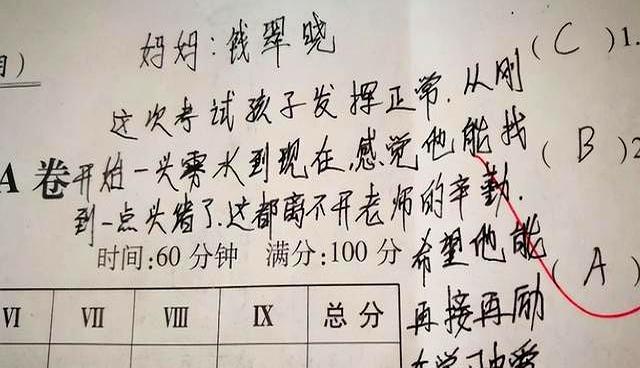 妈妈：钱翠晓
(C)1.
这次考试孩子发挥正常.从刚
A 卷
开始一头雾水到现在,感觉他能找
(B)2
到一点头绪了.这都离不开老师的辛勤.
时间:60 分钟 满分:100 分
希望他能
(A)
再接再励
VI VII VIII IX 总 分
在学习中